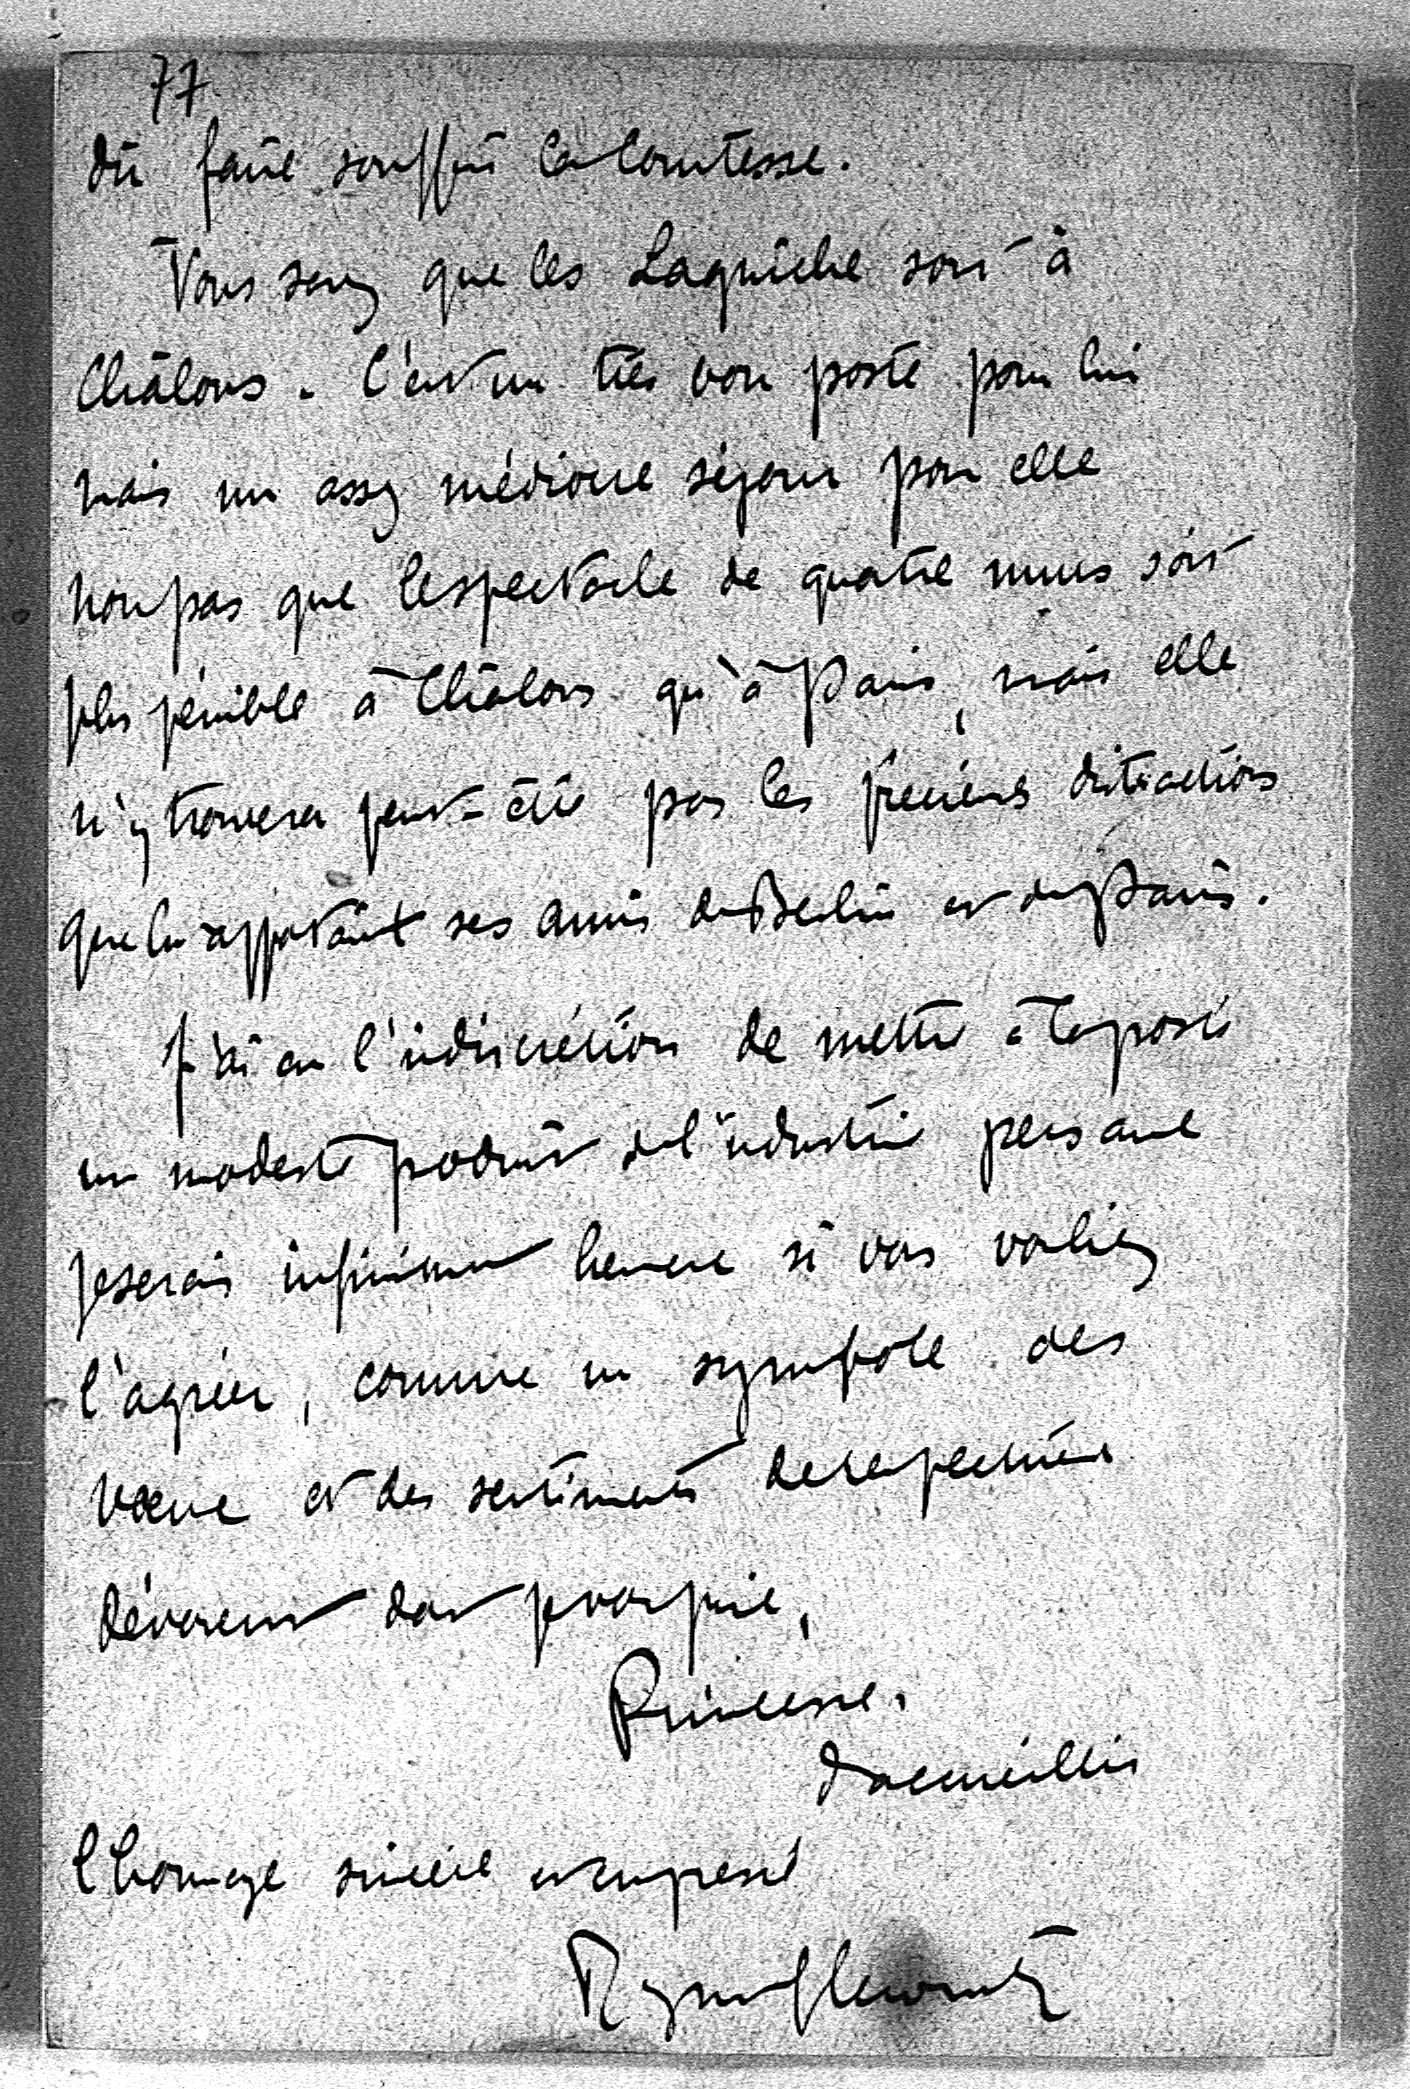 77
dû faire souffrir la Comtesse.
Vous savez que les Laguiche sont à
Châlons. C'est un très bon poste pour lui
mais un assez médiocre séjour pour elle
non pas que le spectacle de quatre murs soit
plus pénible à Châlons qu'à Paris, mais elle
n'y trouvera peut-être pas les précieuses distractions
que lui apportaient ses amis de Berlin et de Paris.
J'ai eu l'indiscrétion de mettre à la poste
un modeste produit de l'industrie persane
je serais infiniment heureux si vous vouliez
l'agréer, comme un symbole des
vœux et des sentiments de respectueux
dévouement dont je vous prie,
Princesse,
d'accueillir
l'hommage sincère et empressé